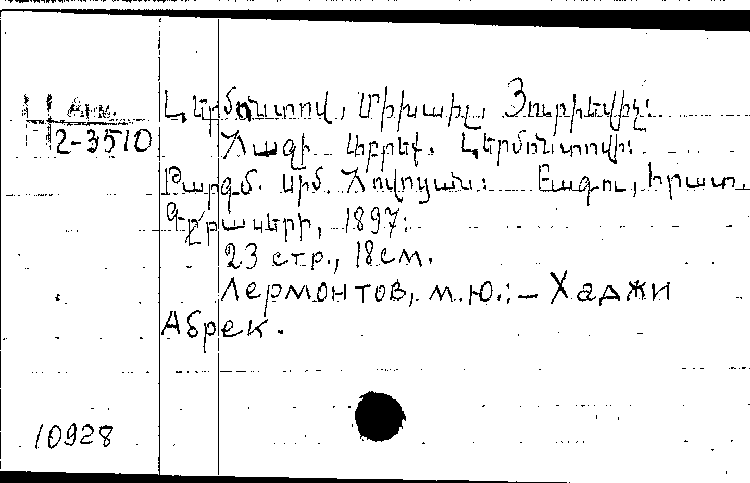 Арм.
2-3510
Լերմոնտով, Միխայիլ, Յուրիեվիչ:
Հաջի Աբրեկ. Լերմոնտովի:
Թարգմ. Սիմ. Հովոյան: Բագու, հրատ.
Գ. Շրակերի, 1897:
23 стр., 18 см.
Лермонтов, М.Ю.:– Хаджи
Абрек.
10928